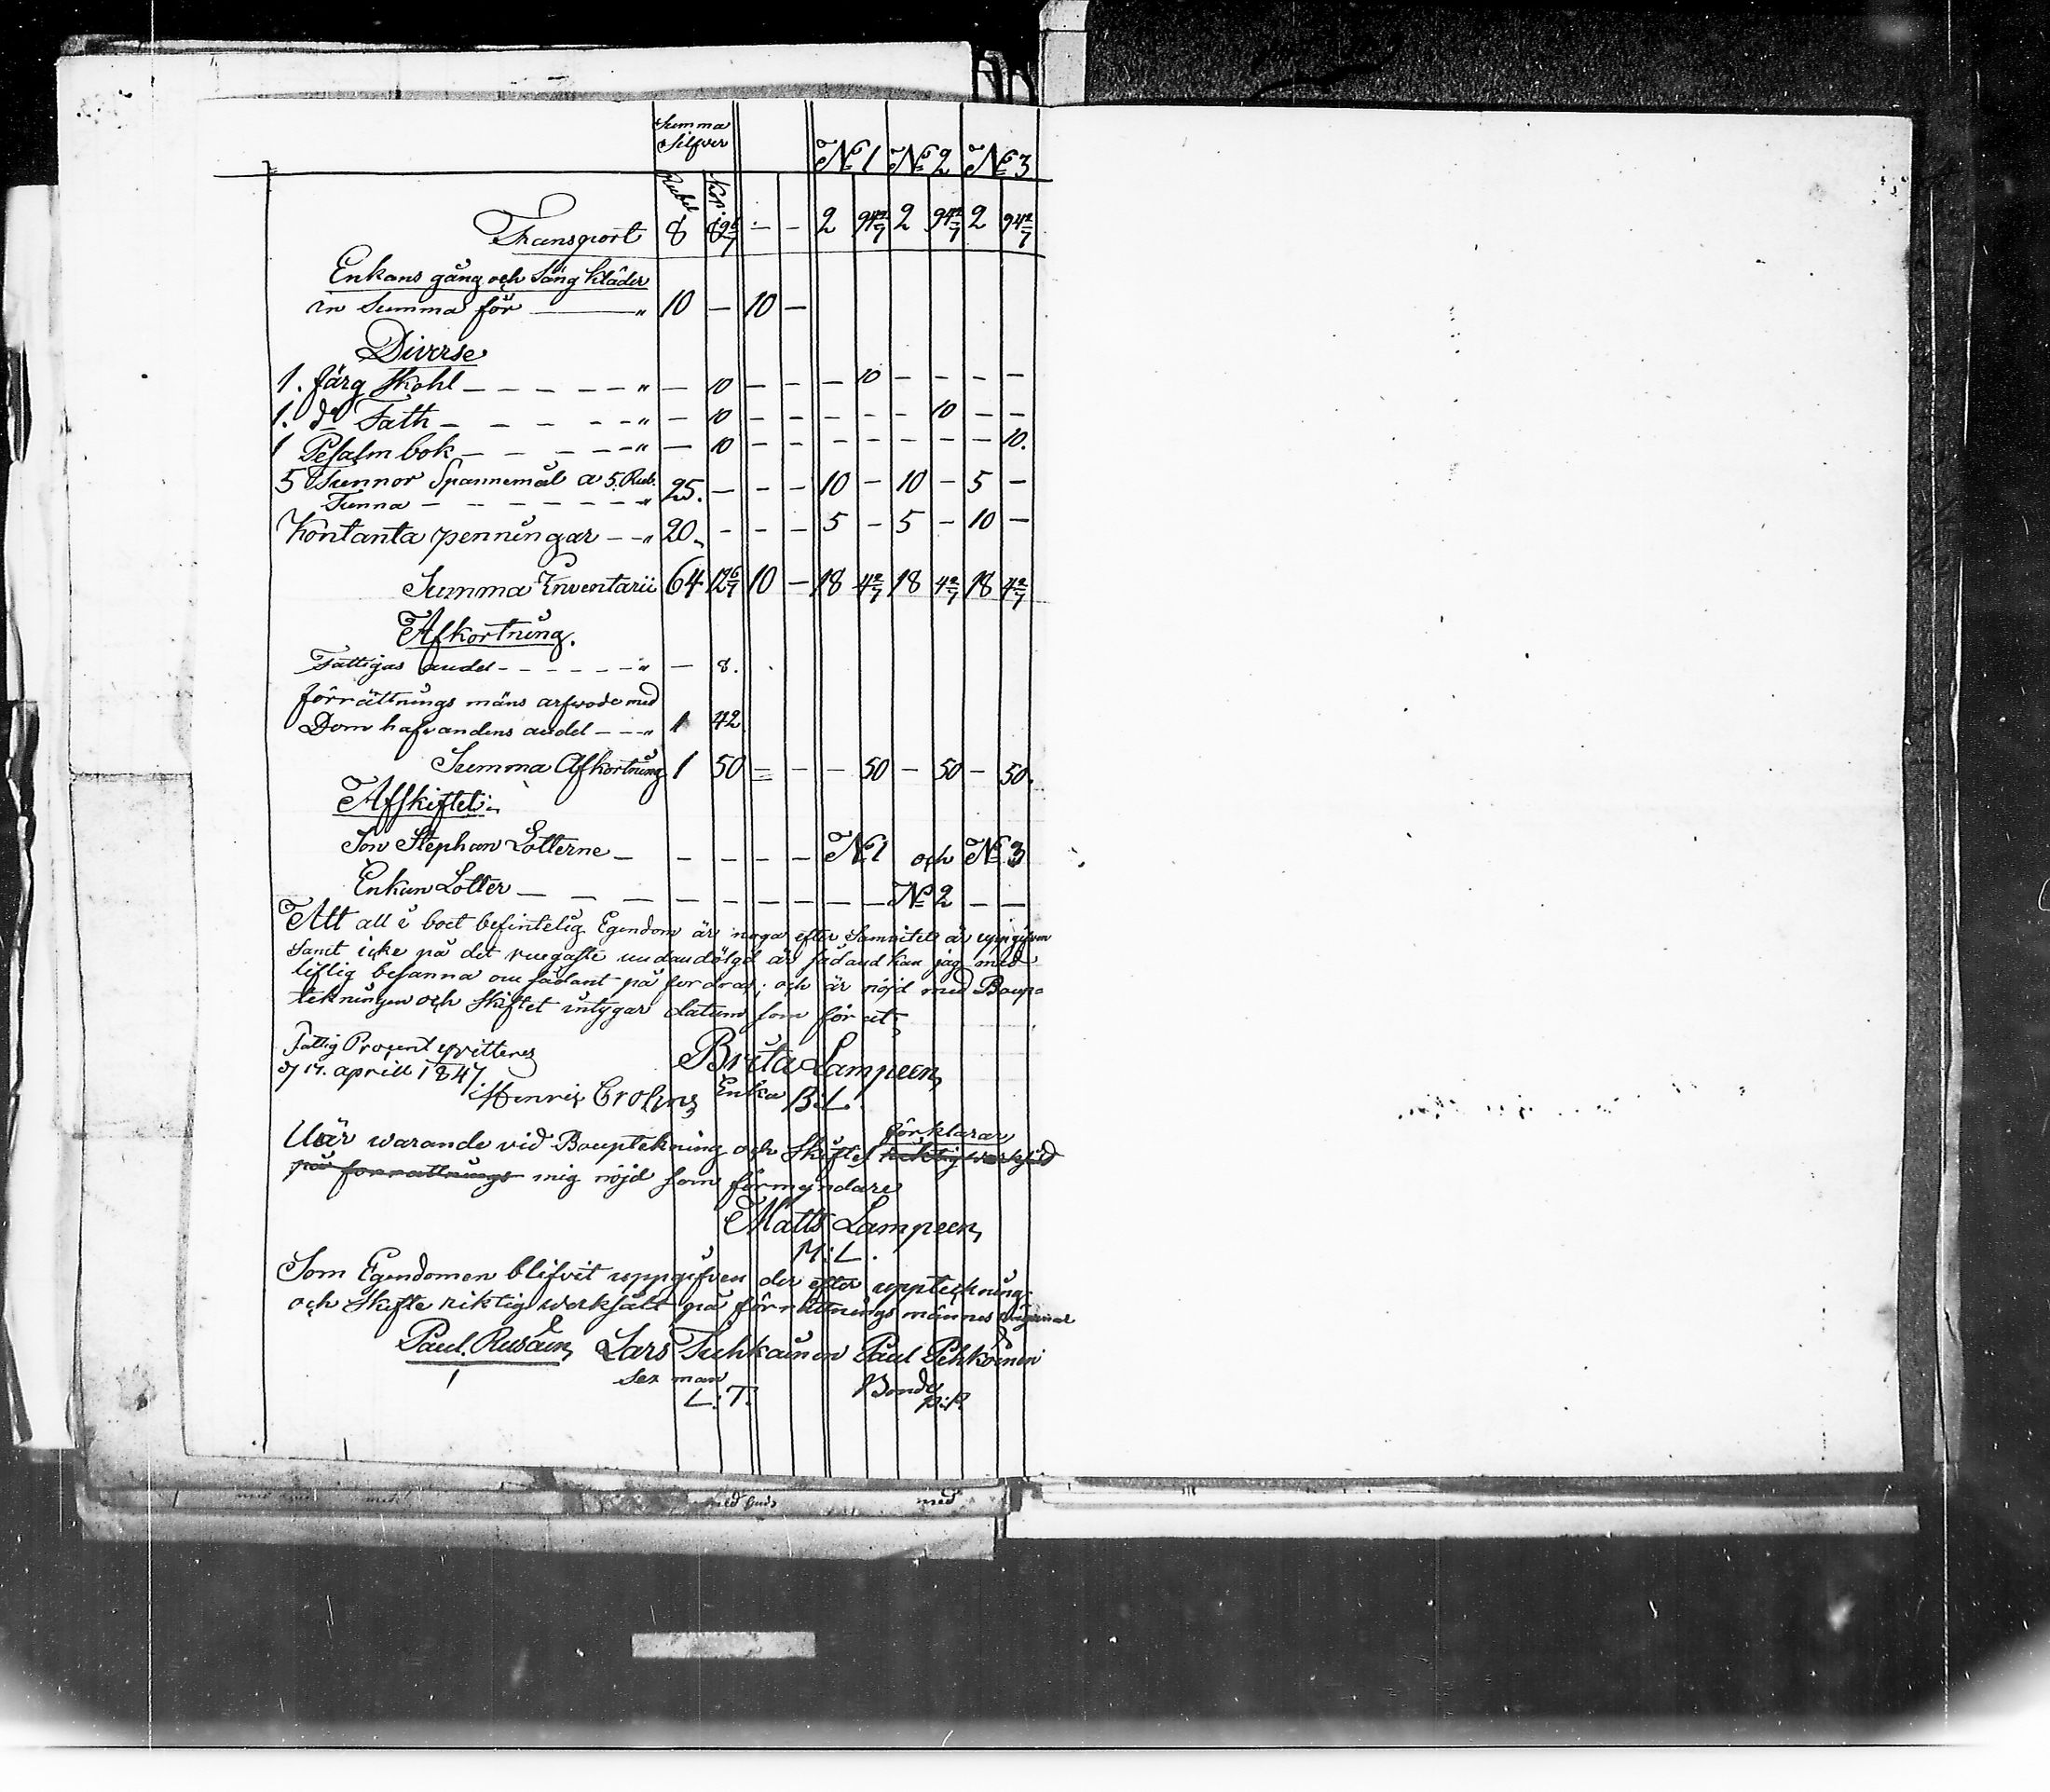 Summa
Silfver
No 1 No 2 No 3
Rubel Kop.
Transport 8 82 6/7 — — 2 94 2/7 2 94 2/7 2 94 2/7
Enkans gång och Säng kläder
en Summa för — " 10 — 10 —
Diverse
1. färg Skohl — — — — — " — 10 — — — 10 — — — —
1. do Fath — — — — — " — 10 — — — — — 10 — —
1 Psalm bok — — — — — " — 10 — — — — — — — 10.
5 Tunnor Spannemål a 5. Rub.
Tunna — — — — — — " 25. — — — 10 — 10 — 5 —
Kontanta penningar — — " 20. — — — 5 — 5 — 10 —
Summa Inventarii 64 12 6/7 10 — 18 4 2/7 18 4 2/7 18 4 2/7
Afkortning.
Fattigas andel — — — — — " — 8.
förrättnings mäns arfwode med
Dom hafvandens andel — — " 1 42
Summa Afkortning 1 50 = — — 50 — 50 — 50.
Afskiftet:
Son Stephan Lotterne — — — — — No 1 och No 3
Enkan Lotter — — — — — — — — — No 2 — —
Att all i boet befintelig Egendom är noga efter Samvitet är uppgifven
samt icke på det ringaste undandölgd är sådand kan jag med
liflig besanna om sådant på fordras; och är nöjd med Boup-
tekningen och Skiftet intygar datum som för ut,
Fattig Procent qvitteras
d 17. aprill 1847.
Henric Crohns
Brita Lampeen,
Enka B:L.
När warande vid Bouptekning och Skiftet förklarar
på forrattnings mig nöjd som förmyndare
Matts Lampeen,
M:L.
Som Egendomen blifvit uppgifven der efter uppteckning
och Skifte riktig werkstält på förrättnings männes wägnar
Paul. Rusain, Lars Tuhkainen Paul Pehkoinen
Sex man Bonde
L:T. P:P.
med